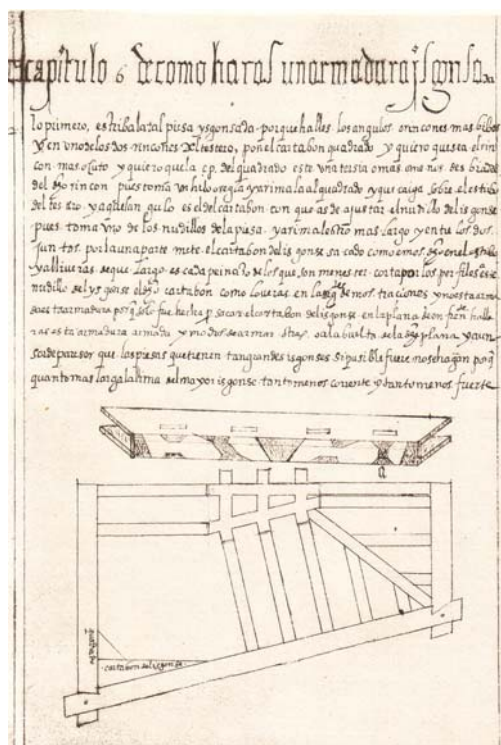 capitulo 6 de como haras un armadura ysgonsa
lo primero, estriba la tal piesa ysgonsada porque halles los angulos o rincones mas bibos
y en uno de los dos rincones del testero, pon el cartabon quadrado y quiero que sea el rin
con mas y quiero que la del quadrado este una tersia o mas o menos
del rincon pues toma un hilo o regla y arimala al quadrado y que caiga sobre el estribo
del testero y aquel angulo es el del cartabon con que as de ajustar el nudillo del isgonse
pues toma uno de los nudillos de la piesa y arimalo otro mas largo y entre los dos
juntos por la una parte mete el cartabon del isgonse sacado como emos en el estribo
y alli veras que largo es cada peinaso de los que son menester corta por los perfiles este
nudillo del ysgonse el cartabon como lo veras en las demostraciones y no esta arm
esta armadura porque solo fue hecha sacar el cartabon del isgonse en la plana de en halla
ras esta armadura armada y modos de armar otras a la buelta de la plana y
de que las piesas que tienen tan grandes isgonses si pusible fuere no se hagan porq
quanto mas larga la lima del mayor isgonse tanto menos coriente y tanto menos fuerte
a
quadrado
cartabon del isgonse